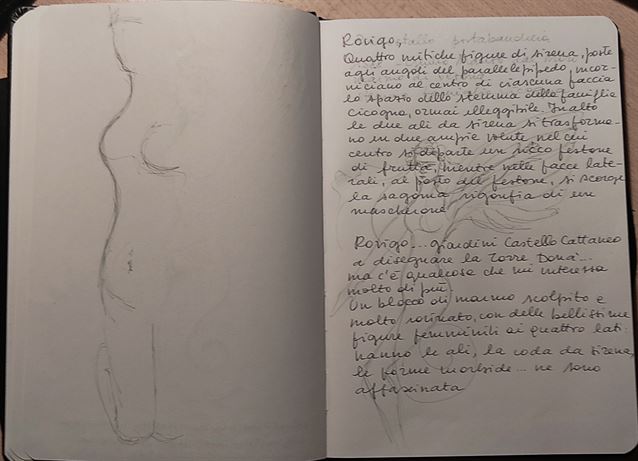 Rovigo, stallo portabandiera
Quattro mitiche figure di sirena, poste
agli angoli del parallelepipedo, incor-
niciano al centro di ciascuna faccia
lo spazio dello stemma della famiglia
Cicogna, ormai illeggibile. In alto
le due ali da sirena si trasforma-
no in due ampie volute, nel cui
centro si diparte un ricco festone
di frutta, mentre nelle facce late-
rali, al posto del festone, si scorge
la sagoma rigonfia di un
mascherone
Rovigo... giardini Castello Cattaneo
a disegnare la Torre Donà...
ma c'è qualcosa che mi interessa
molto di più.
Un blocco di marmo scolpito e
molto rovinato, con delle bellissime
figure femminili ai quattro lati.
hanno le ali, la coda da sirena,
le forme morbide... ne sono
affascinata